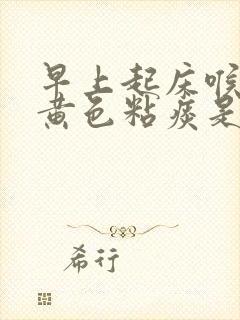 早上起床喉
黄色粘痰是
希行